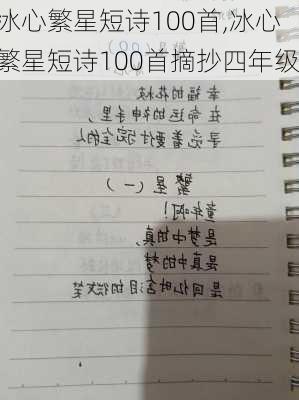 冰心繁星短诗100首,冰心
繁星短诗100首摘抄四年级
幸福的花枝
在命运的神手里,
寻觅着要付完全的人
繁星(一)
童年啊!
是梦中的真,
是真中的梦
是回忆时含泪的微笑